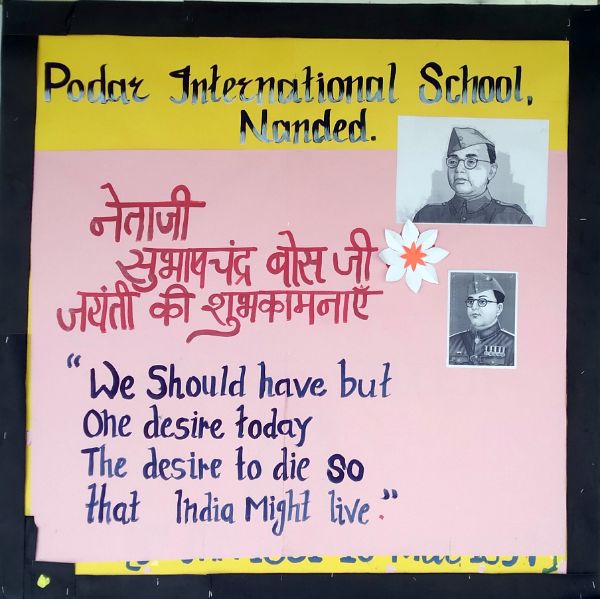 Podar International School,
Nanded.
नेताजी
सुभाषचंद्र बोस जी
जयंती की शुभकामनाएँ
"We Should have but
One desire today
The desire to die so
that India Might live."